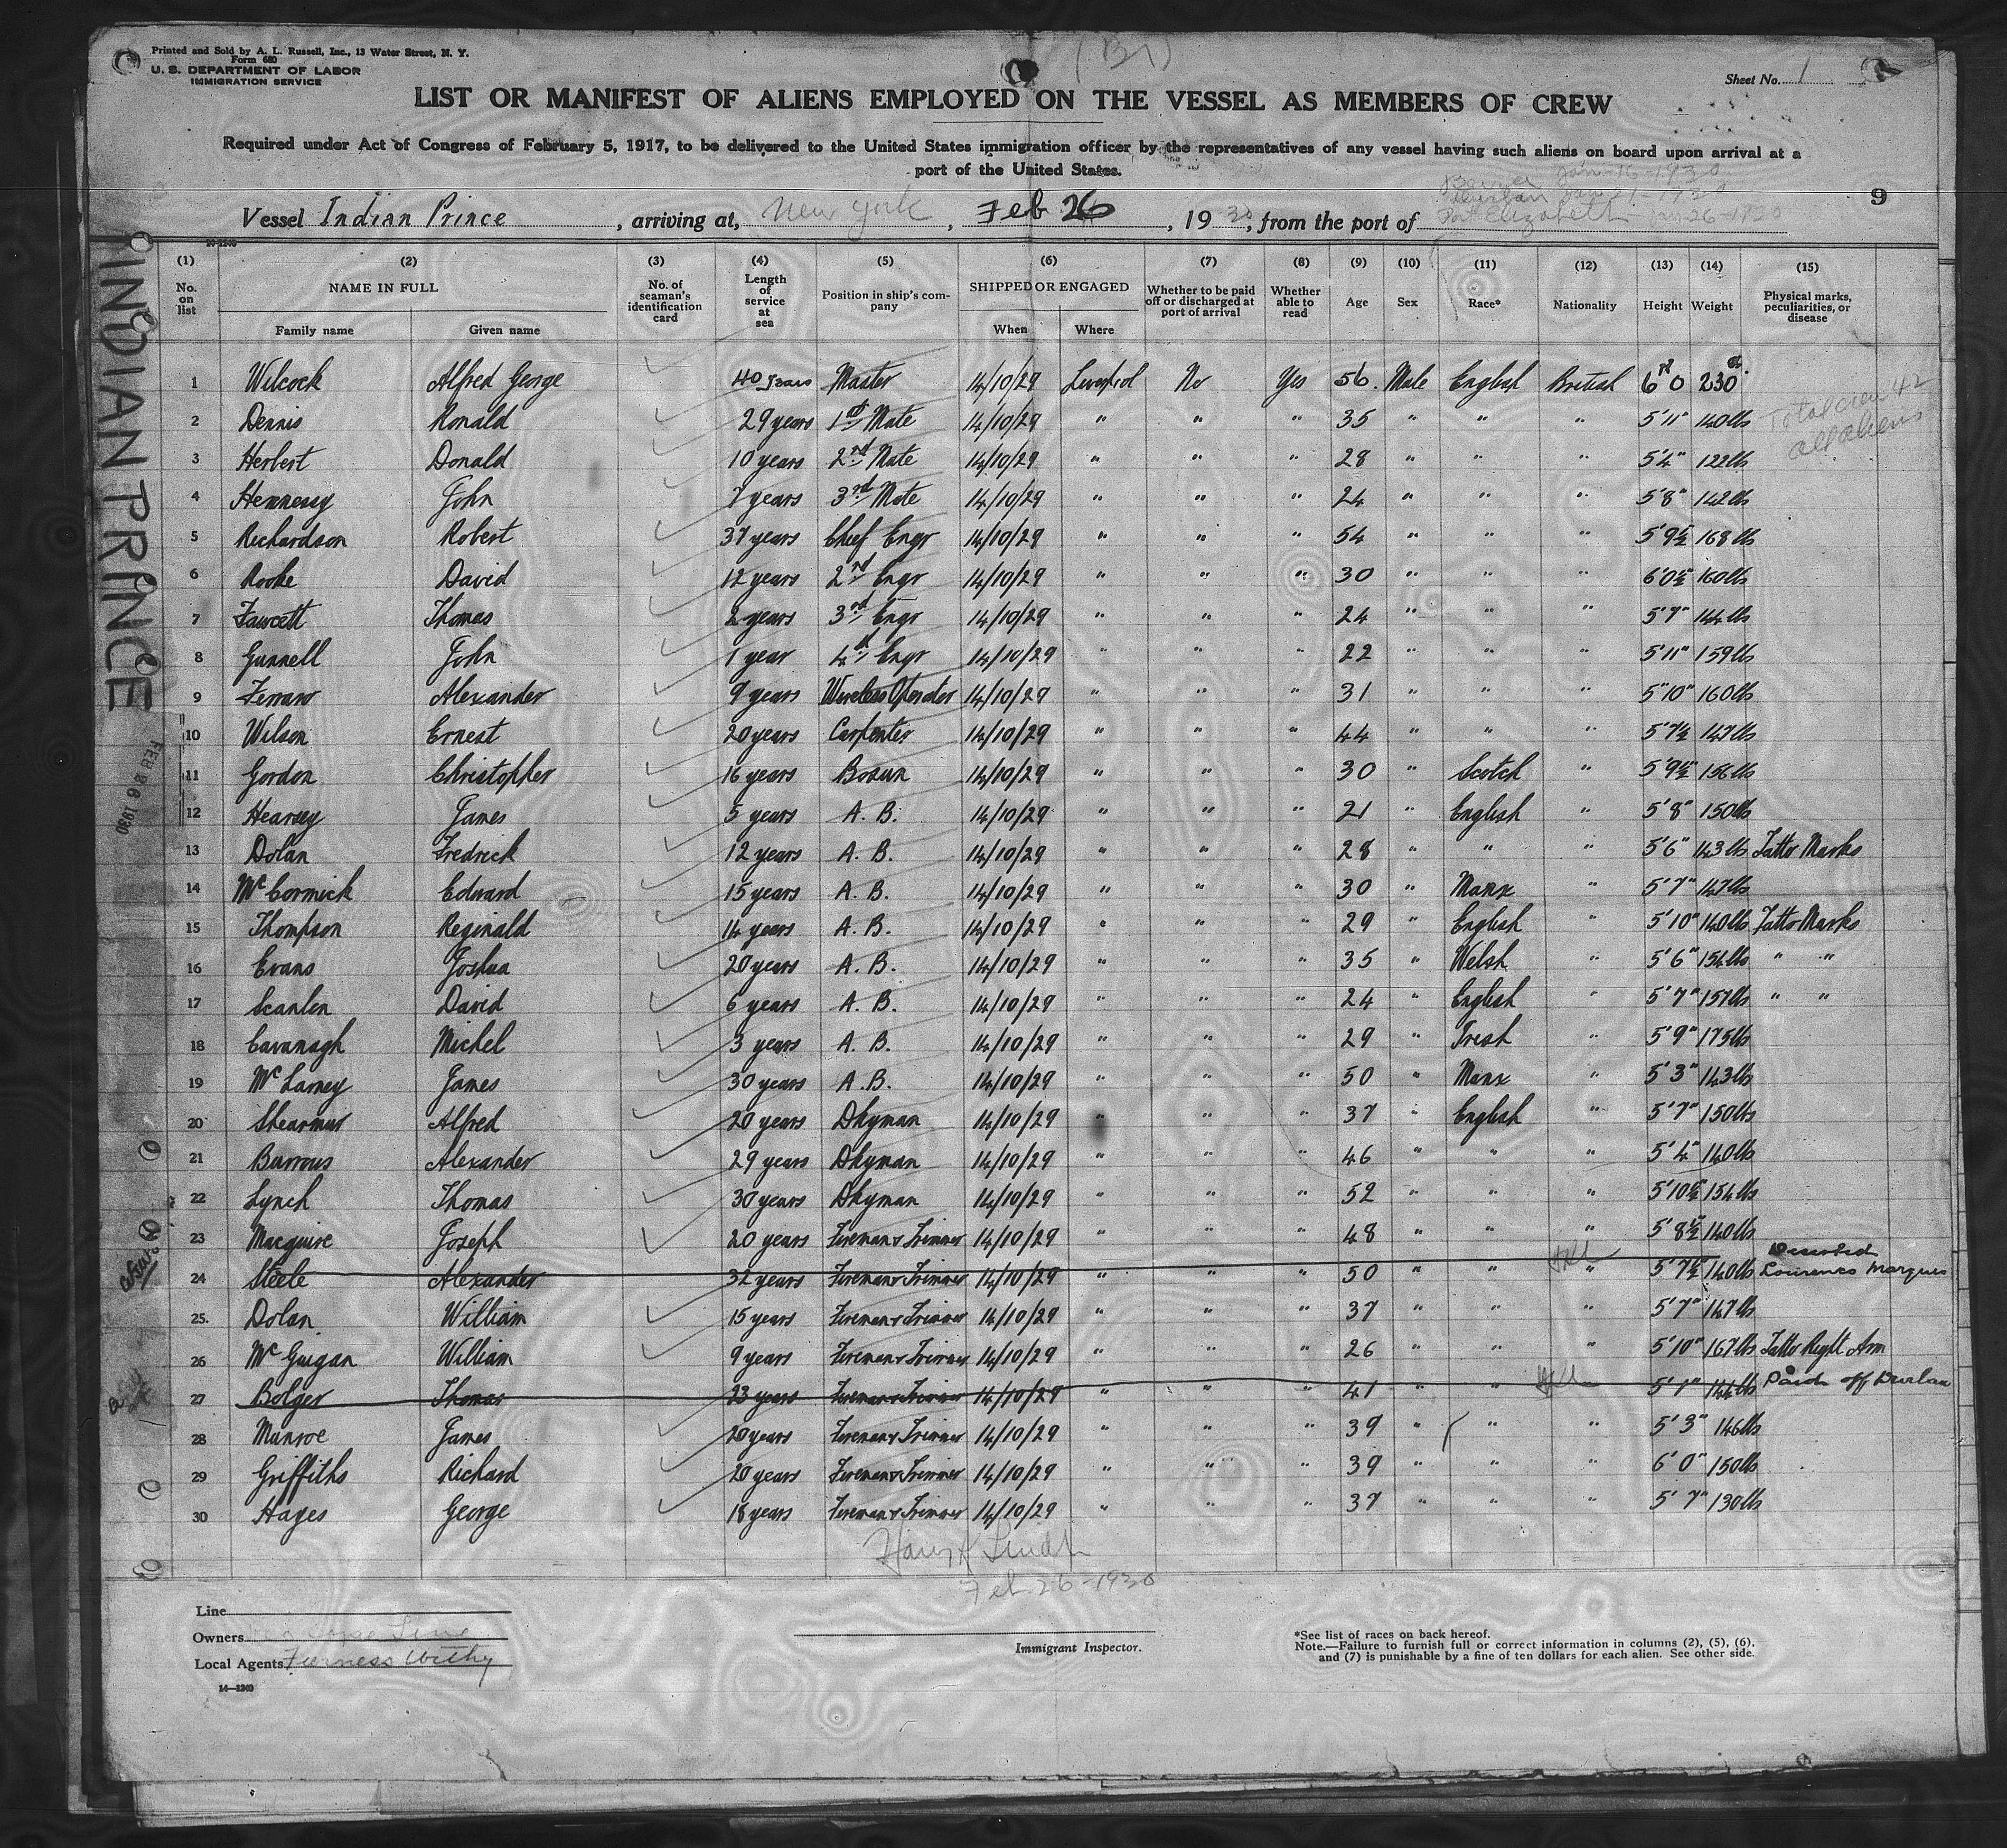 Printed and Sold by A. L. Russell, Inc., 13 Water Street, N. Y.
Form 680
U. S. DEPARTMENT OF LABOR
IMMIGRATION SERVICE
Sheet No. 1
LIST OR MANIFEST OF ALIENS EMPLOYED ON THE VESSEL AS MEMBERS OF CREW
Required under Act of Congress of February 5, 1917, to be delivered to the United States immigration officer by the representatives of any vessel having such aliens on board upon arrival at a
port of the United States.
Jan-16-1930
Durban Jan 21-1930
9
Vessel Indian Prince, arriving at, New York, Feb 26, 1930, from the port of Port Elizabeth Jan 26-1930
INDIAN PRINCE
FEB 26 1930
14-1240
(1) (2) (3) (4) (5) (6) (7) (8) (9) (10) (11) (12) (13) (14) (15)
No. on list NAME IN FULL Family name Given name No. of seaman's identification card Length of service at sea Position in ship's company SHIPPED OR ENGAGED When Where Whether to be paid off or discharged at port of arrival Whether able to read Age Sex Race* Nationality Height Weight Physical marks, peculiarities, or disease
1 Wilcock Alfred George 40 years Master 14/10/29 Liverpool No Yes 56. Male English British 6 0 230
2 Dennis Ronald 29 years 1st Mate 14/10/29 " " " 35 " " " 5'11" 140lbs
Total crew 42
all aliens
3 Herbert Donald 10 years 2nd Mate 14/10/29 " " " 28 " " " 5'4" 122lbs
4 Hennessy John 7 years 3rd Mate 14/10/29 " " " 24 " " " 5'8" 142lbs
5 Richardson Robert 37 years Chief Engr 14/10/29 " " " 54 " " " 5'9½ 168lbs
6 Rooke David 12 years 2nd Engr 14/10/29 " " " 30 " " " 6'0½ 160lbs
7 Fawcett Thomas 2 years 3rd Engr 14/10/29 " " " 24 " " " 5'7" 144lbs
8 Gunnell John 1 year 4th Engr 14/10/29 " " " 22 " " " 5'11" 159lbs
9 Ferraro Alexander 9 years Wireless Operator 14/10/29 " " " 31 " " " 5'10" 160lbs
10 Wilson Ernest 20 years Carpenter 14/10/29 " " " 44 " " " 5'7½ 147lbs
11 Gordon Christopher 16 years Bosun 14/10/29 " " " 30 " Scotch " 5'9½" 156lbs
12 Hearsey James 5 years A. B. 14/10/29 " " " 21 " English " 5'8" 150lbs
13 Dolan Fredrick 12 years A. B. 14/10/29 " " " 28 " " " 5'6" 143lbs Tatto Marks
14 McCormick Edward 15 years A. B. 14/10/29 " " " 30 " Manx " 5'7" 147lbs
15 Thompson Reginald 14 years A. B. 14/10/29 " " " 29 " English " 5'10" 140lbs Tatto Marks
16 Evans Joshua 20 years A. B. 14/10/29 " " " 35 " Welsh " 5'6" 154lbs " "
17 Scanlon David 6 years A. B. 14/10/29 " " " 24 " English " 5'7" 157lbs " "
18 Cavanagh Michel 3 years A. B. 14/10/29 " " " 29 " Irish " 5'9" 175lbs
19 McLarney James 30 years A. B. 14/10/29 " " " 50 " Manx " 5'3" 143lbs
20 Shearmur Alfred 20 years Dkyman 14/10/29 " " " 37 " English " 5'7" 150lbs
21 Burrows Alexander 29 years Dkyman 14/10/29 " " " 46 " " " 5'4" 140lbs
22 Lynch Thomas 30 years Dkyman 14/10/29 " " " 52 " " " 5'10½" 154lbs
23 Macguire Joseph 20 years Fireman & Trimmer 14/10/29 " " " 48 " " " 5'8½" 140lbs
24 Steele Alexander 32 years Fireman & Trimmer 14/10/29 " " " 50 " " " 5'7½" 140lbs Deserted Lourenco Marques
25. Dolan William 15 years Fireman & Trimmer 14/10/29 " " " 37 " " " 5'7" 147lbs
26 McGuigan William 9 years Fireman & Trimmer 14/10/29 " " " 26 " " " 5'10" 167lbs Tatto Right Arm
27 Bolger Thomas 23 years Fireman & Trimmer 14/10/29 " " " 41 " " 5'7" 144lbs Paid off Durban
28 Munroe James 20 years Fireman & Trimmer 14/10/29 " " " 39 " " " 5'3" 146lbs
29 Griffiths Richard 20 years Fireman & Trimmer 14/10/29 " " " 39 " " " 6'0" 150lbs
30 Hages George 18 years Fireman & Trimmer 14/10/29 " " " 37 " " " 5'7" 130lbs
Feb 26-1930
Line
Owners
Local Agents Furness Withy
14—1240
Immigrant Inspector.
*See list of races on back hereof.
Note.—Failure to furnish full or correct information in columns (2), (5), (6),
and (7) is punishable by a fine of ten dollars for each alien. See other side.